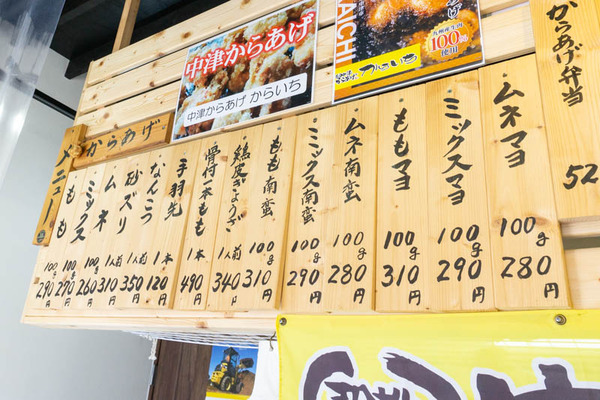 中津からあげ
中津からあげ からいち
AICHI
100%
使用
からいち
からあげ
メニュー
もも 100g 290円
ミックス 100g 270円
ムネ 100g 260円
砂ズリ 1人前 310円
なんこつ 1人前 350円
手羽先 1本 120円
骨付本もも 1本 490円
鶏皮ぎょうざ 1人前 340円
もも南蛮 100g 310円
ミックス南蛮 100g 290円
ムネ南蛮 100g 280円
ももマヨ 100g 310円
ミックスマヨ 100g 290円
ムネマヨ 100g 280円
からあげ弁当 52